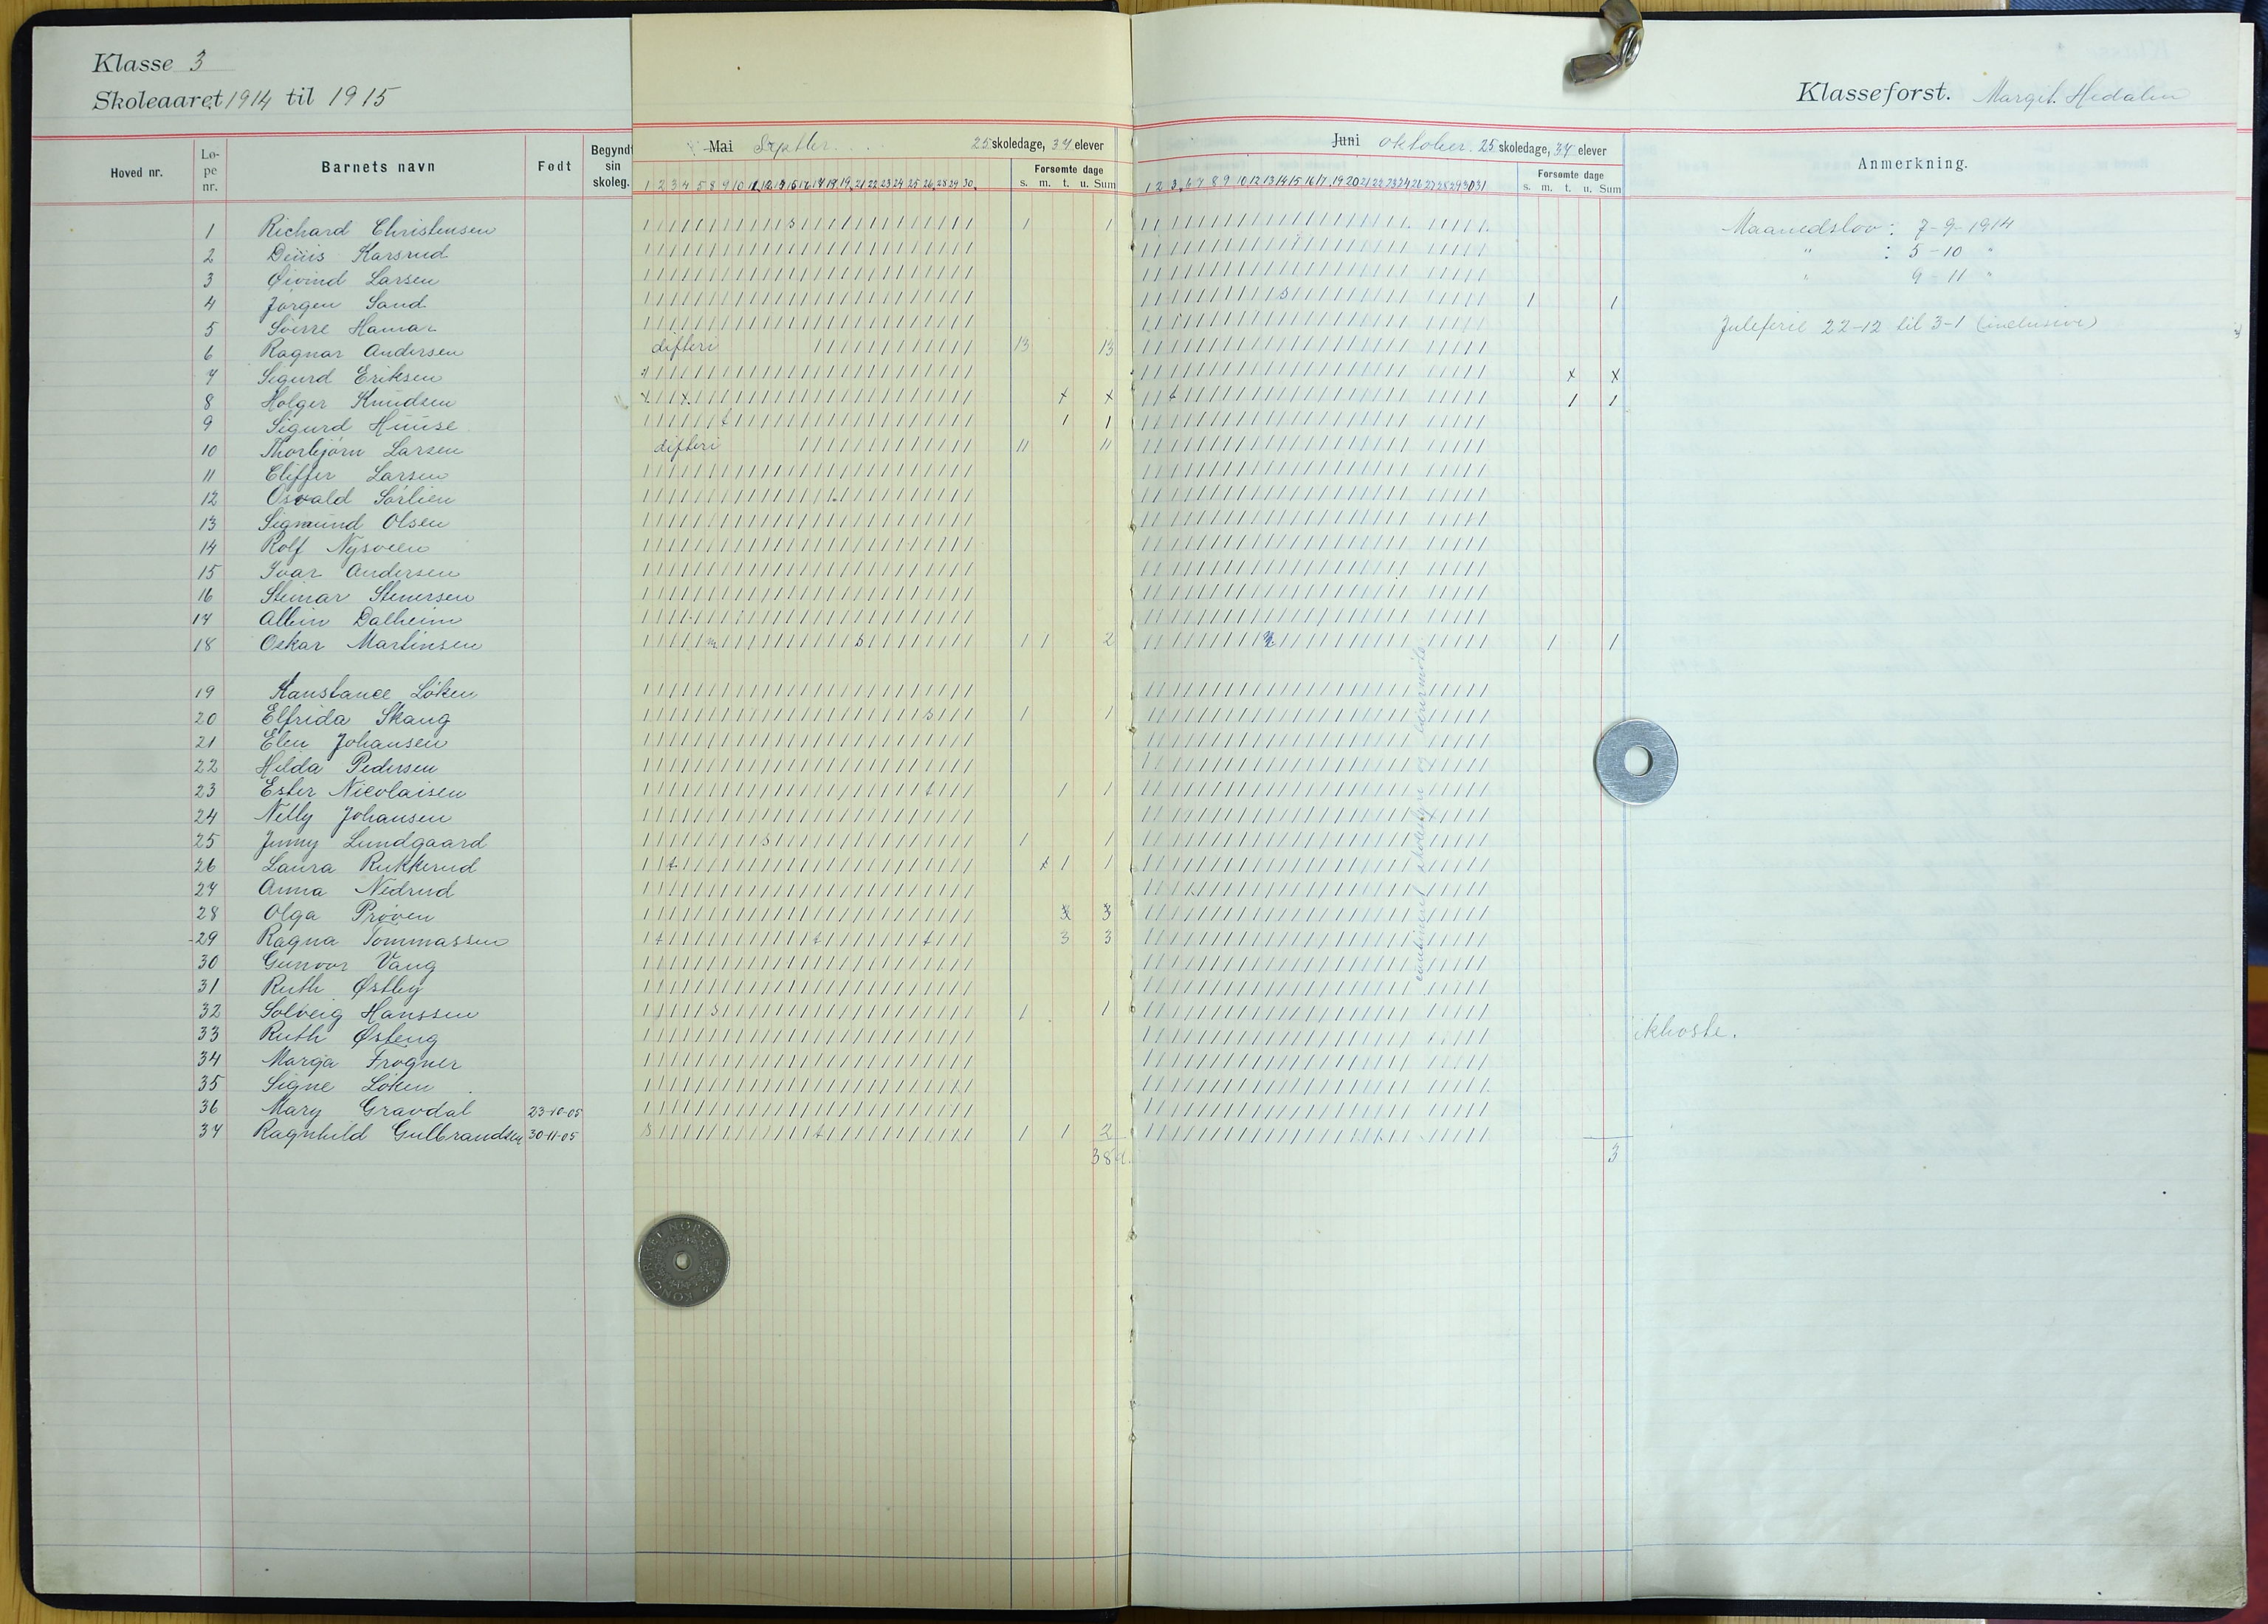 Klasse 3
Skoleaaret 1914 til 1915
Klasseforst. Margit Hedalen
Hoved nr.
Lø-
pe
nr.
Barnets navn
Født
Begyndt
sin
skoleg.
Mai Septbr. 25 skoledage, 37 elever
Forsømte dage
s. m. t. u. Sum
Juni oktober. 25 skoledage, 37 elever
Forsømte dage
s. m. t. u. Sum
Anmerkning.
1 Richard Christensen
2 Karsrud
3 Øivind Larsen
4 Jørgen Sand
5 Sverre Hamar
6 Ragnar Andersen difteri 13 13
7 Sigurd Eriksen
8 Holger Knudsen
9 Sigurd
10 Thorbjørn Larsen difteri 11 11
11 Larsen
12 Osvald Sørlien
13 Sigmund Olsen
14 Rolf Nysveen
15 Ivar Andersen
16 Steinar Stenersen
17 Albin Dalheim
18 Oskar Martinsen 1 1 2 1 1
19 Konstance Løken
20 Elfrida Skaug
21 Elen Johansen
22 Hilda Pedersen
23 Ester Nicolaisen
24 Nelly Johansen
25 Jenny Lundgaard
26 Laura Rukkerud
27 Anna Nedrud
28 Olga Prøven
29 Ragna Tommassen 3 3
30 Gunvor Vang
31 Ruth Østby
32 Solveig Hanssen
33 Ruth Østeng
34 Marga Frogner
35 Signe Løken
36 Mary Gravdal 23-10-05
37 Ragnhild Gulbrandsen 30-11-05 1 1 2
3
Maanedslov: 7-9-1914
" : 5-10 "
" 9-11 "
Juleferie 22-12 til 3-1 (inclusive)
ikhoste.
KONGERIKET NORGE